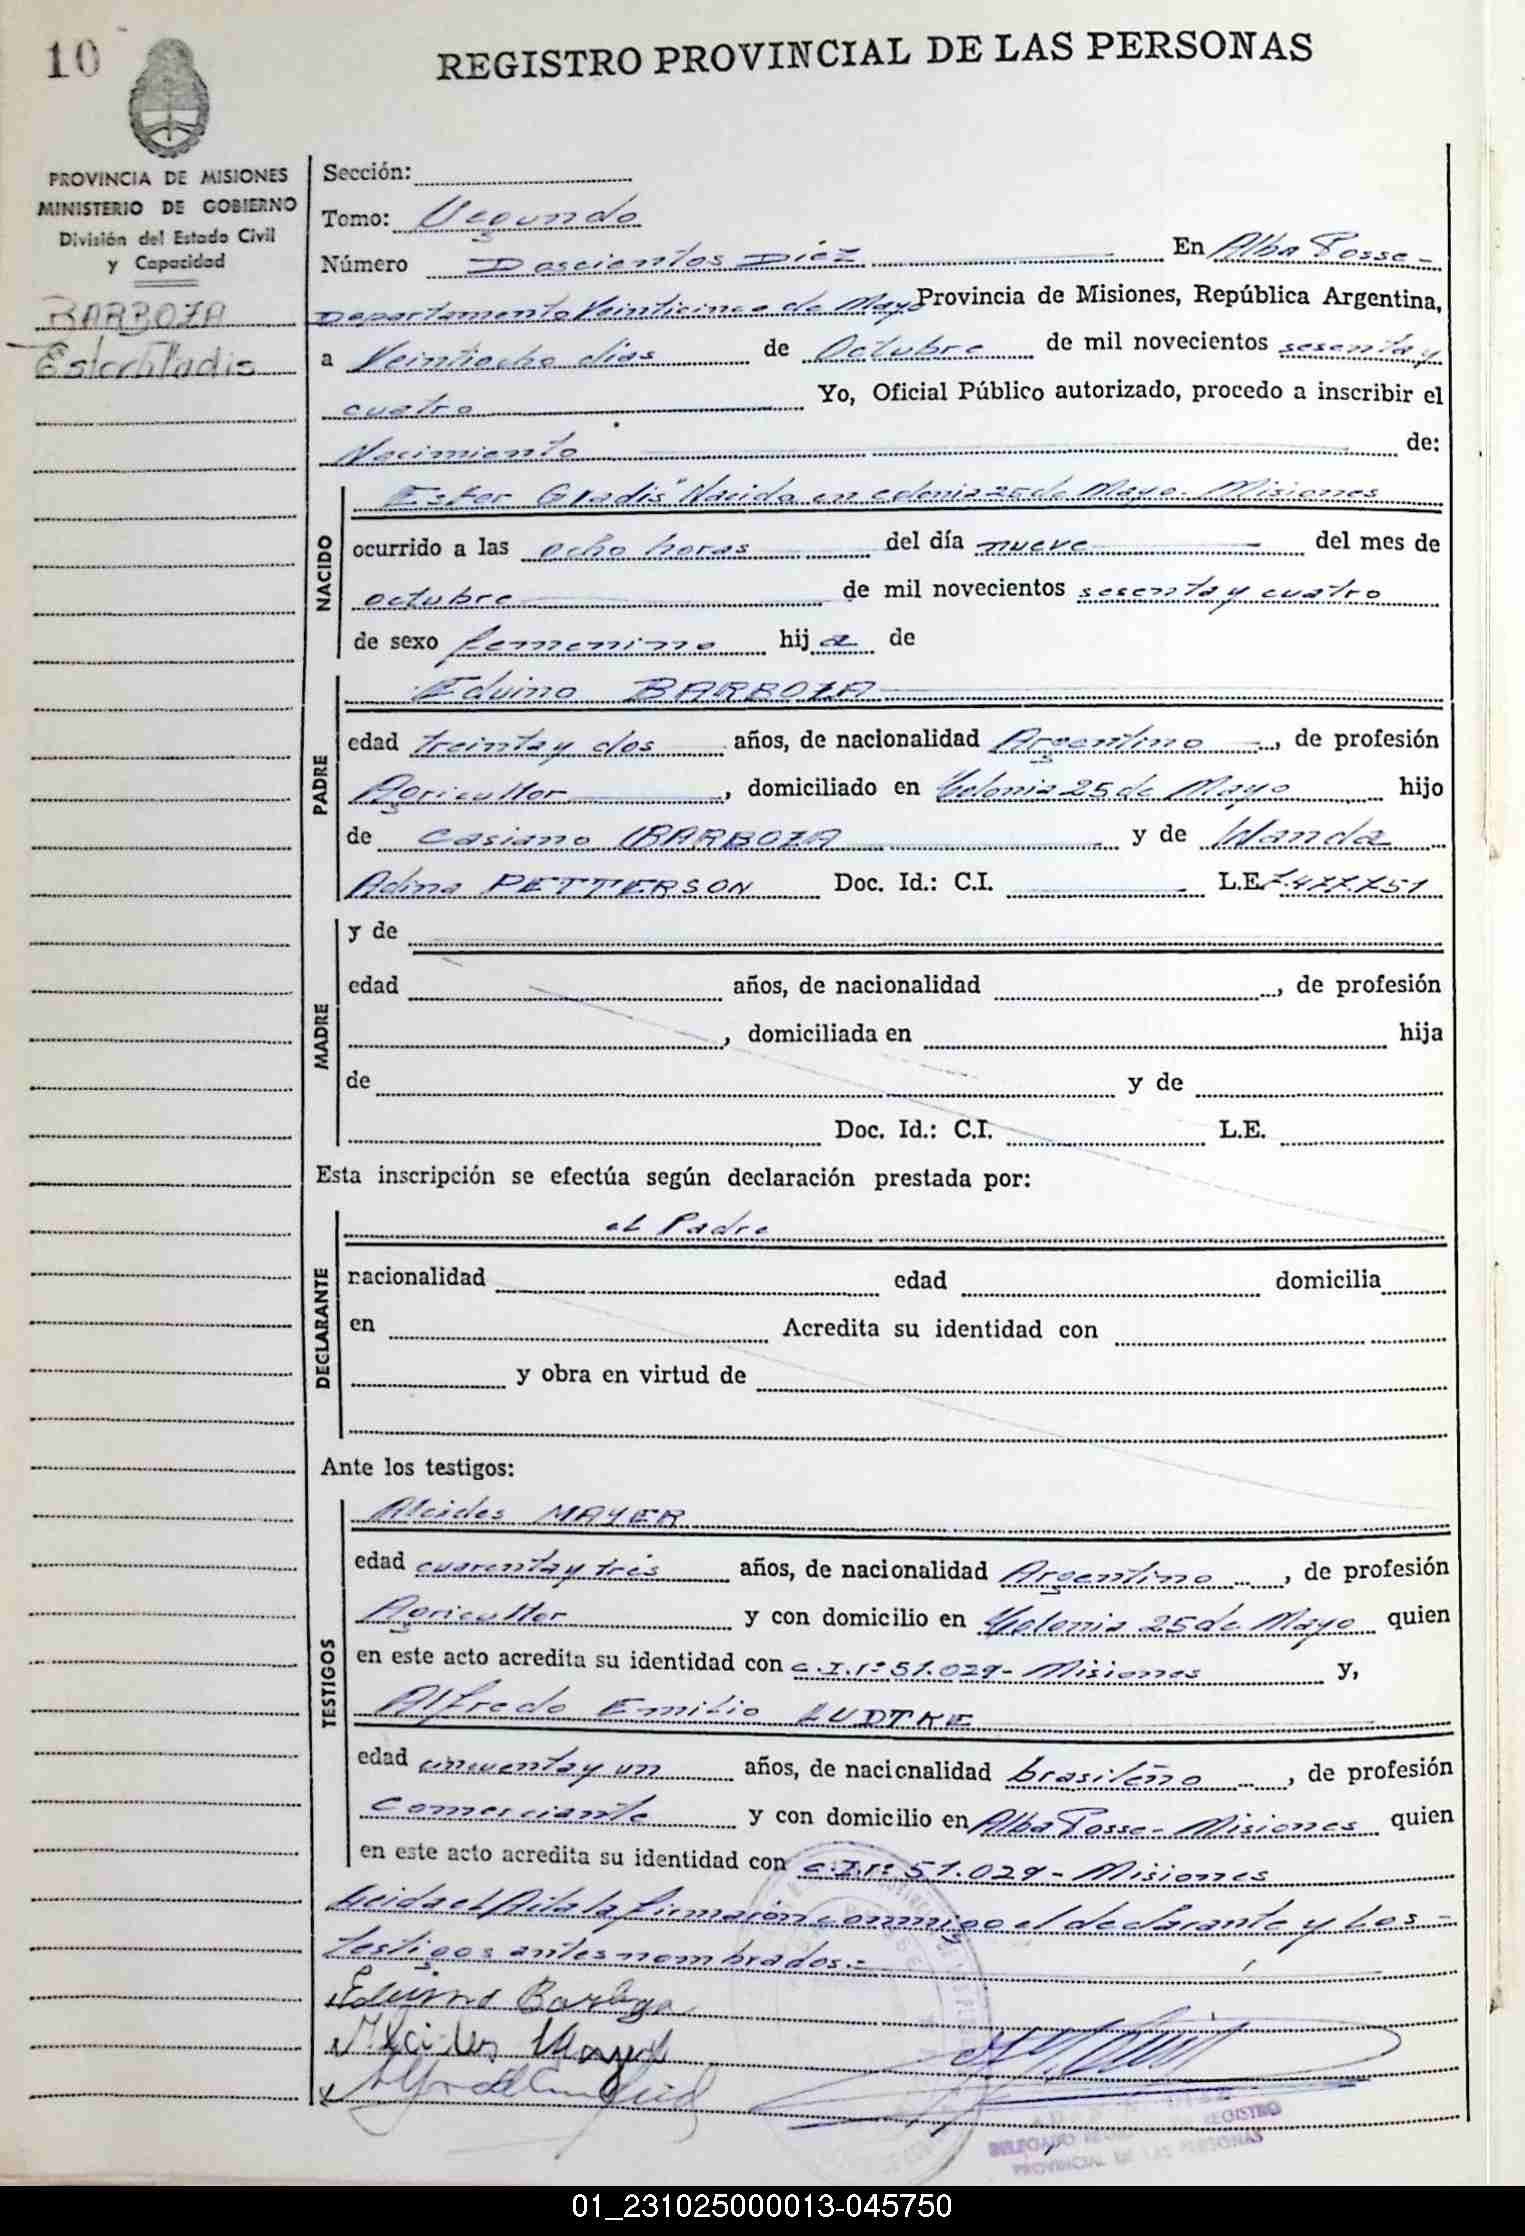 10
REGISTRO PROVINCIAL DE LAS PERSONAS
PROVINCIA DE MISIONES
MINISTERIO DE GOBIERNO
División del Estado Civil
y Capacidad
BARBOZA
Ester Gladis
Sección:
Tomo: Segundo
Número Doscientos Diéz En Alba Posse-
Departamento Veinticinco de Mayo Provincia de Misiones, República Argentina,
a Veintiocho días de Octubre de mil novecientos sesenta y
cuatro Yo, Oficial Público autorizado, procedo a inscribir el
Nacimiento de:
NACIDO
Ester Gladis" Nacida en colonia 25 de Mayo- Misiones
ocurrido a las ocho horas del día nueve del mes de
octubre de mil novecientos sesenta y cuatro
de sexo femenino hij a de
PADRE
Eduino BARBOZA
edad treinta y dos años, de nacionalidad Argentino, de profesión
Agricultor, domiciliado en Colonia 25 de Mayo hijo
de Casiano BARBOZA y de Wanda
Adina PETTERSON Doc. Id.: C.I. L.E. 7.477.751
MADRE
y de
edad años, de nacionalidad , de profesión
, domiciliada en hija
de y de
Doc. Id.: C.I. L.E.
Esta inscripción se efectúa según declaración prestada por:
DECLARANTE
el Padre
nacionalidad edad domicilia
en Acredita su identidad con
y obra en virtud de
Ante los testigos:
TESTIGOS
Alcides MAYER
edad cuarenta y trés años, de nacionalidad Argentino, de profesión
Agricultor y con domicilio en Colonia 25 de Mayo quien
en este acto acredita su identidad con c.I.n° 51.029- Misiones y,
Alfredo Emilio LUDTKE
edad cincuenta y un años, de nacionalidad brasileño, de profesión
Comerciante y con domicilio en Alba Posse- Misiones quien
en este acto acredita su identidad con c.I.n° 51.029- Misiones
Leida el Acta la firmarón conmigo el declarante y los-
testigos antes nombrados.-
Eduino Barboza
Alcides Mayer
DELEGADO REGISTRO
PROVINCIAL DE LAS PERSONAS
01_231025000013-045750